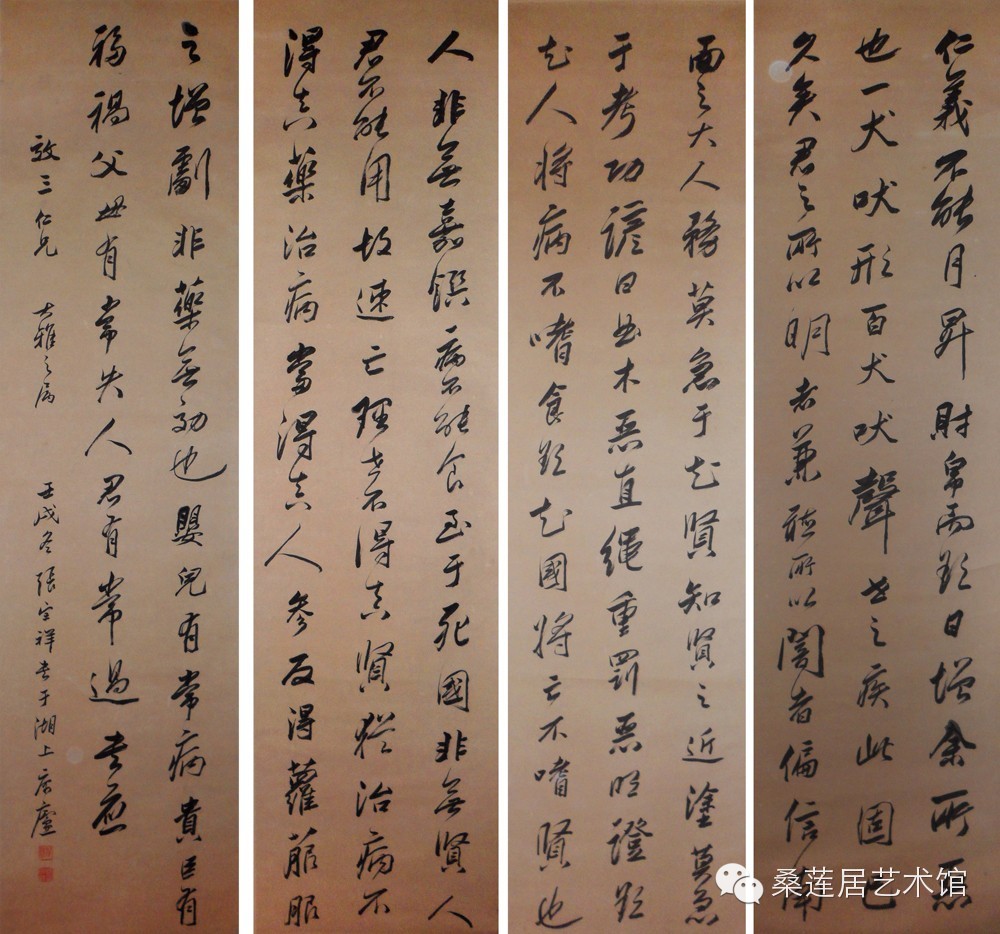 仁義不能月昇財帛而欲日增余所惡
也一犬吠形百犬吠聲世之疾此固已
久矣君之所以明者兼聽所以闇者偏信南
面之大人務莫急于知賢知賢之近塗莫急
于考功諺曰曲木惡直繩重罰惡明證欲
知人將病不嗜食欲知國將亡不嗜賢也
人非無嘉饌病不能食至于死國非無賢人
君不能用故速亡理世不得真賢猶治病不
得真藥治病當得真人參反得蘿菔服
之增劇非藥無功也嬰兒有常病貴臣有
福禍父母有常失人君有常過書應
敬三仁兄 大雅之屬 壬戌冬張宗祥書于湖上廬
桑莲居艺术馆